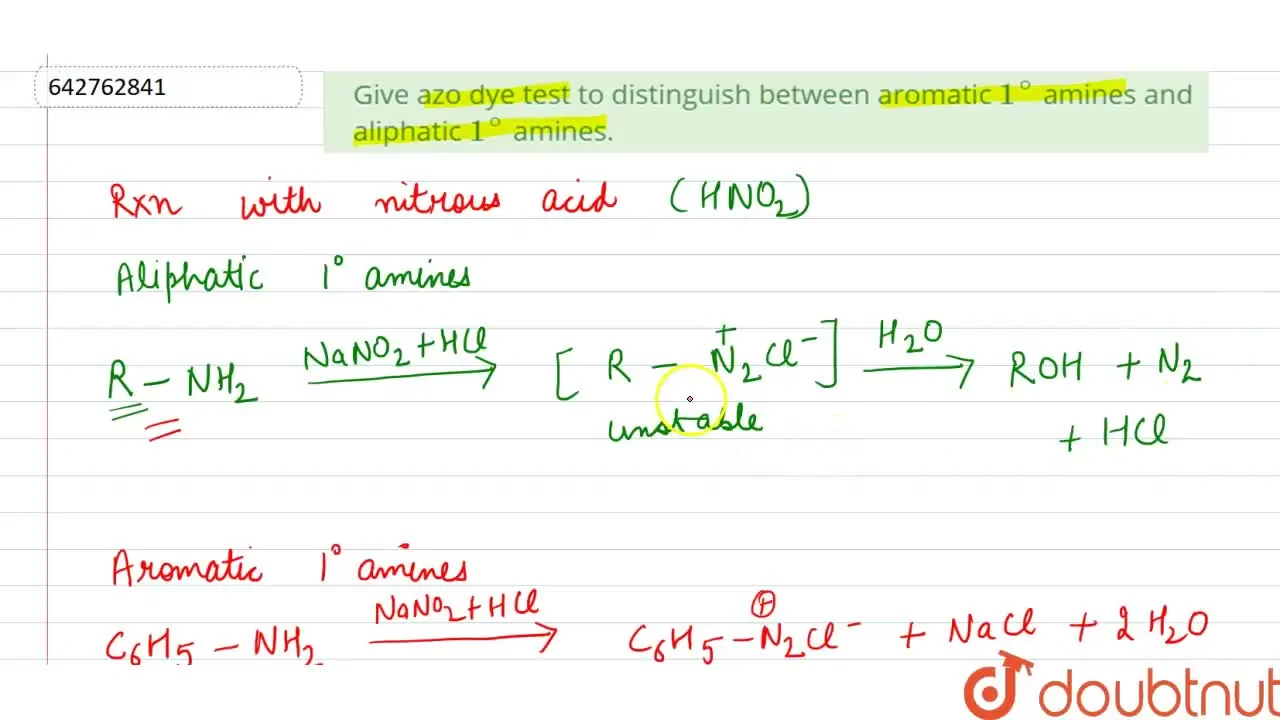 642762841
Give azo dye test to distinguish between aromatic 1° amines and
aliphatic 1° amines.
Rxn with nitrous acid (HNO₂)
Aliphatic 1° amines
R – NH₂ NaNO₂ + HCl → [ R – N₂⁺Cl⁻ ] H₂O → ROH + N₂
unstable + HCl
Aromatic 1° amines
C₆H₅ – NH₂ NaNO₂ + HCl → C₆H₅ – N₂⊕Cl⁻ + NaCl + 2H₂O
doubtnut